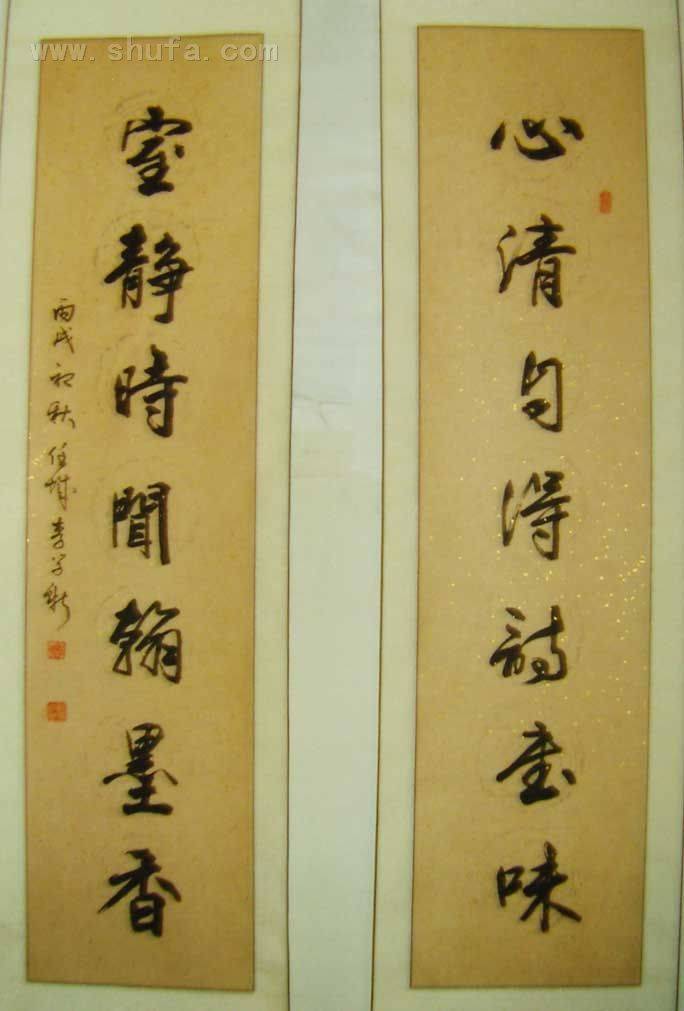 www.shufa.com
心清自得詩書味
室静時聞翰墨香
丙戌初秋任城李学